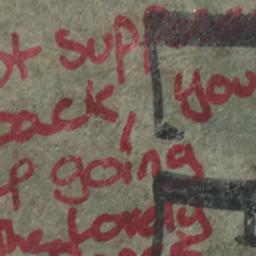 ot supp
back, you
p going
the Lovely